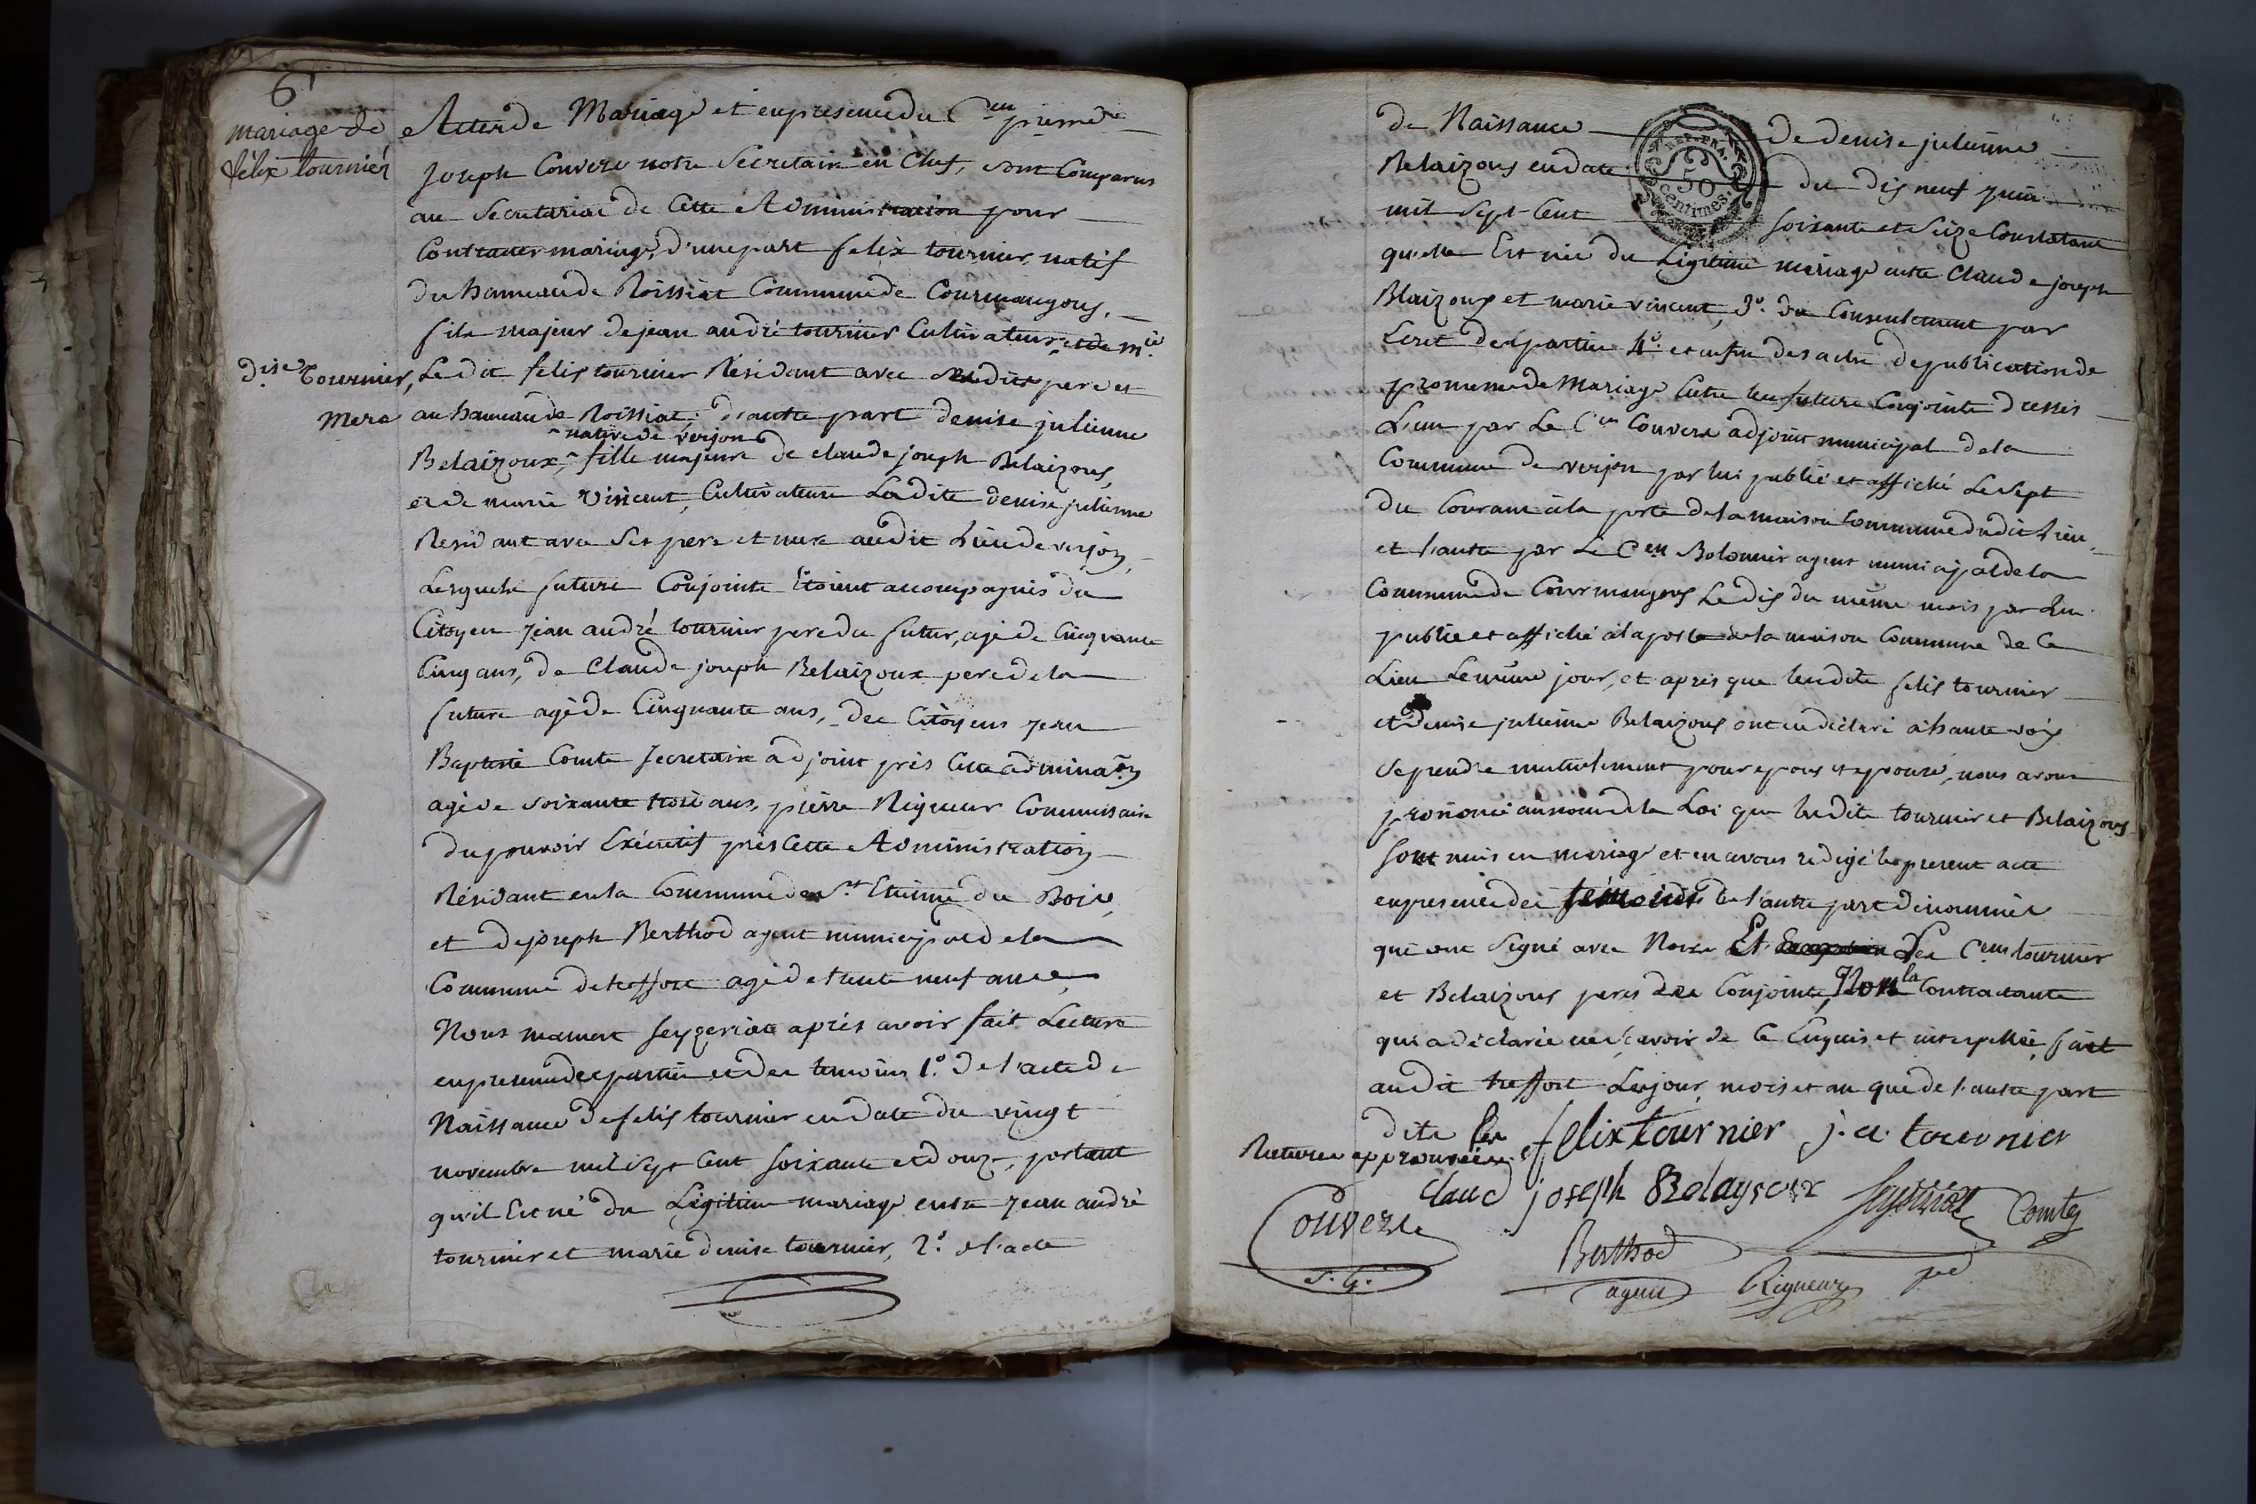 6
mariage de
felix tournier
Actes de Mariage et en presence du C.en prime
joseph Couvere notre Secretaire en Chef, sont Comparus
au Secretariat de Cette Administration pour
Contracter mariage, d'une part felix tournier, natif
du hameau de Roissiat Commune de Courmangoux,
fils majeur de jean andré tournier Cultivateur et de m.ie
d.ise Tournier, Ledit felix tournier Résidant avec sesdits pere et
mere au hameau de Roissiat; d'autre part denise julienne
native de verjon
Belaizoux, fille majeure de claude joseph Belaizoux,
et de marie vincent, Cultivateurs Ladite denise julienne
Residant avec Ses pere et mere audit Lieu de verjon,
Lesquels futurs Conjoints Etoient accompagnés du
Citoyen jean andré tournier pere du futur, agé de Cinquante
Cinq ans, de Claude joseph Belaizoux pere de la
future agé de Cinquante ans, des Citoyens jean
Baptiste Comte Secretaire adjoint près Cette adminaōn
agé de soixante trois ans, pierre Rigueur Commissaire
du pouvoir Exécutif près Cette Administration
Résidant en la Commune de St. Etienne du Bois,
et de joseph Berthod agent municipal de la
Commune de treffort agé de trente neuf ans
Nous mament seyzeriat après avoir fait Lecture
en presence des parties et des temoins 1.º de l'acte de
Naissance de felix tournier en date du vingt
novembre mil Sept Cent soixante et douze, portant
qu'il Est né du Légitime mariage entre jean andré
tournier et marie denise tournier, 2.º de l'acte
de Naissance de denise julienne
RÉP. FRA.
50
centimes
Belaizoux en date du dix neuf juin
mil Sept Cent soixante et Seize Constatant
qu'elle Est née du Légitime mariage entre Claude joseph
Blaizoux et marie vincent, 3.º du Consentement par
Ecrit des parties 4.º et enfin des actes de publication de
promesse de Mariage Entre les futurs Conjoints dressés
L'un par Le C.en Couvere adjoint municipal de la
Commune de verjon par lui publié et affiché Le Sept
du Courant à la porte de la maison Commune dudit Lieu,
et l'autre par Le C.en Bolomier agent municipal de la
Commune de Courmangoux Le dix du même mois par Lui
publié et affiché à la porte de la maison Commune de Ce
Lieu Le même jour, et après que lesdits felix tournier
et denise julienne Belaizoux ont eu déclaré à haute voix
Se prendre mutuellement pour epoux et epouse, nous avons
prononcé au nom de la Loi que lesdits tournier et Belaizoux
sont unis en mariage et en avons redigé le present acte
en presence des témoins de l'autre part dénommés
qui ont Signé avec Nous Et Les C.ens tournier
et Belaizoux peres des Conjoints, Non la Contractante
qui a déclaré ne Scavoir de Ce Enquis et interpellée, fait
audit treffort Les jour, mois et an que de l'autre part
dits
Ratures approuvées felix tournier j. a. tournier
claud joseph Belaysoux Seyzeriat Comte
Couvere Berthod
S. G. agent Rigueur